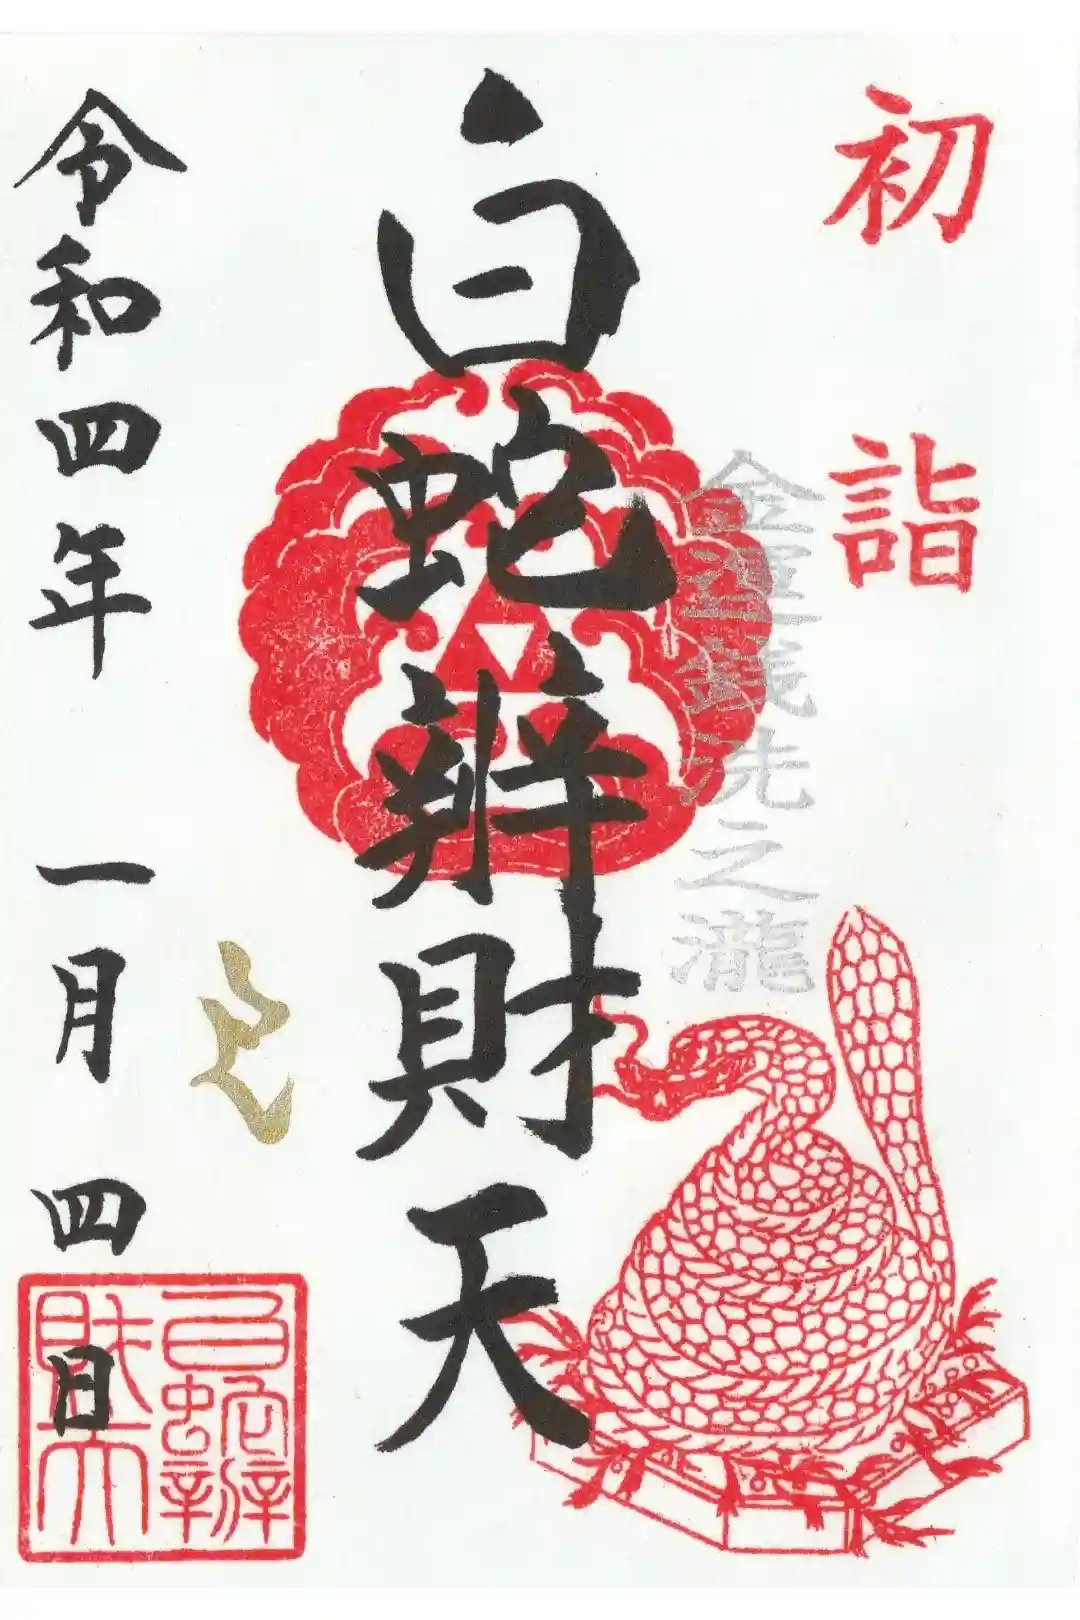 初詣
金運銭洗之瀧
白蛇辨財天
巳
令和四年 一月 四日
白蛇辨財天